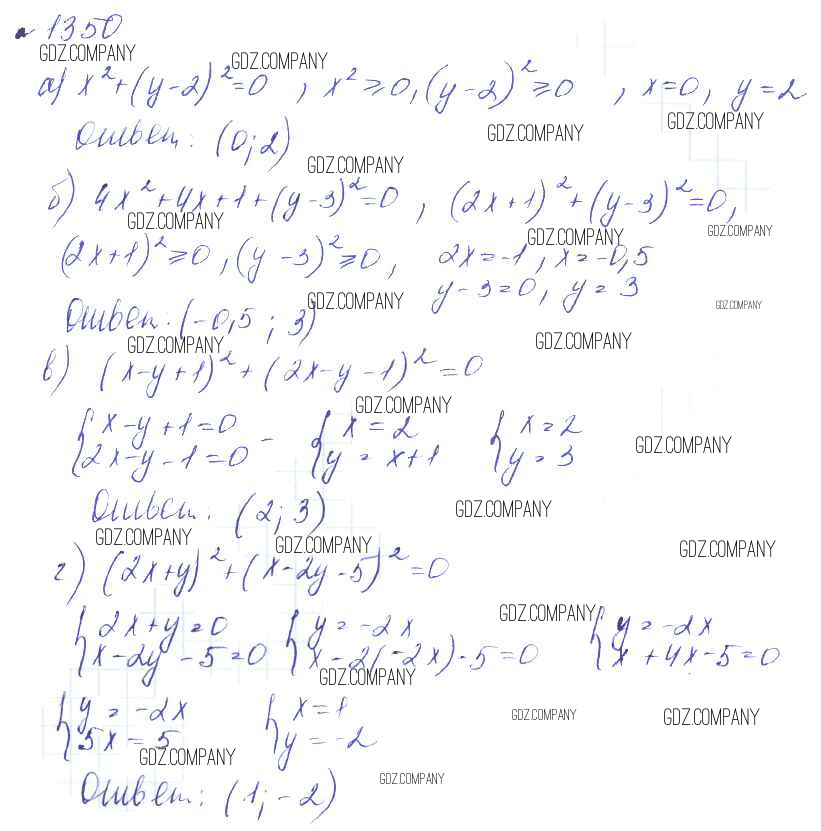 № 1350
GDZ.COMPANY GDZ.COMPANY
а) x²+(y-2)²=0 , x²≥0, (y-2)²≥0 , x=0, y=2
GDZ.COMPANY GDZ.COMPANY
Ответ: (0;2)
GDZ.COMPANY
б) 4x²+4x+1+(y-3)²=0 , (2x+1)²+(y-3)²=0,
GDZ.COMPANY GDZ.COMPANY GDZ.COMPANY
(2x+1)²≥0, (y-3)²≥0, 2x=-1, x=-0,5
y-3=0, y=3
GDZ.COMPANY GDZ.COMPANY
Ответ: (-0,5; 3)
GDZ.COMPANY GDZ.COMPANY
в) (x-y+1)²+(2x-y-1)²=0
GDZ.COMPANY
{x-y+1=0 - {x=2 {x=2
{2x-y-1=0 {y=x+1 {y=3
GDZ.COMPANY
Ответ: (2; 3)
GDZ.COMPANY
GDZ.COMPANY GDZ.COMPANY GDZ.COMPANY
г) (2x+y)²+(x-2y-5)²=0
GDZ.COMPANY
{2x+y=0 {y=-2x {y=-2x
{x-2y-5=0 {x-2(-2x)-5=0 {x+4x-5=0
GDZ.COMPANY
{y=-2x {x=1
GDZ.COMPANY GDZ.COMPANY
{5x=5 {y=-2
GDZ.COMPANY
GDZ.COMPANY
Ответ: (1;-2)